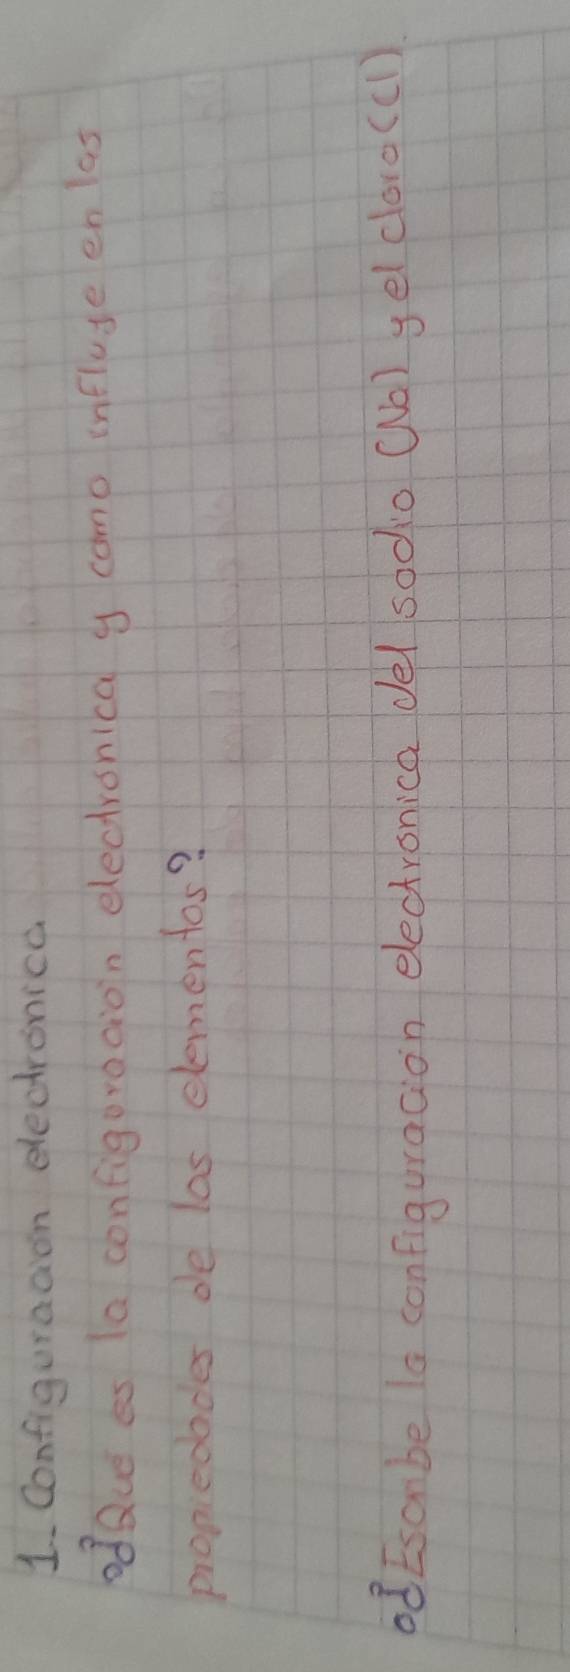 1- Configuración electrónica
¿Que es la configuración electronica y como influye en las
propiedades de los elementos?
¿Escribe la configuración electronica del sodio (Na) y el cloro (Cl).